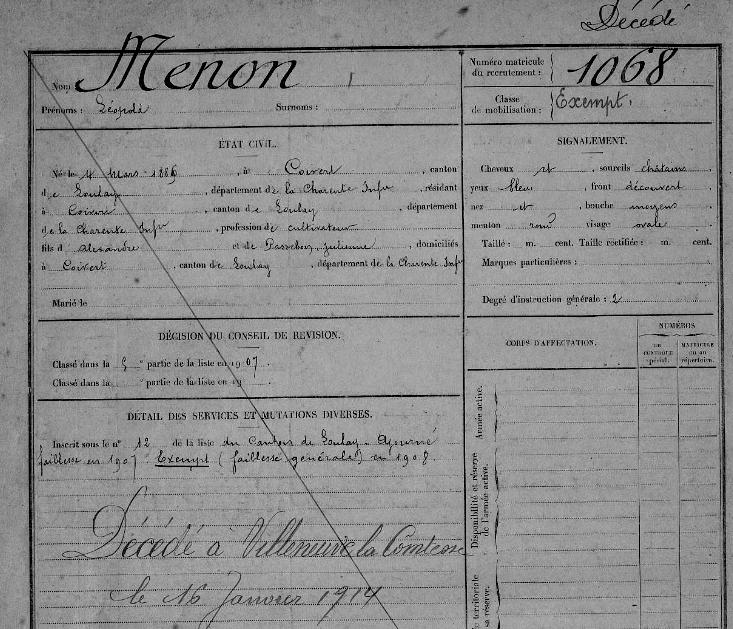 Décédé
Nom Menon
Numéro matricule du recrutement : 1068
Prénoms : Léopold Surnoms :
Classe de mobilisation : Exempt.
ÉTAT CIVIL.
Né le 4 mars 1886, à Coivert, canton
de Loulay, département de la Charente Infre, résidant
à Coivert, canton de Loulay, département
de la Charente Infre, profession de cultivateur
fils d'alexandre et de julienne, domiciliés
à Coivert, canton de Loulay, département de la Charente Infre
Marié le
SIGNALEMENT.
Cheveux et, sourcils châtains
yeux bleus, front découvert
nez et, bouche moyens
menton rond visage ovale
Taille : m. cent. Taille rectifiée : m. cent.
Marques particulières :
Degré d'instruction générale : 2
DÉCISION DU CONSEIL DE REVISION.
Classé dans la 5 e partie de la liste en 1907.
Classé dans la e partie de la liste en 19
DÉTAIL DES SERVICES ET MUTATIONS DIVERSES.
Inscrit sous le n° 12 de la liste du Canton de Loulay. Ajourné
faiblesse en 1907. Exempt (faiblesse générale) en 1908.
Décédé à Villeneuve la Comtesse
le 16 Janvier 1914
CORPS D'AFFECTATION.
NUMÉROS
DE CONTROLE spécial.
MATRICULE ou au répertoire.
Armée active.
Disponibilité et réserve
de l'armée active.
territoriale
sa réserve.